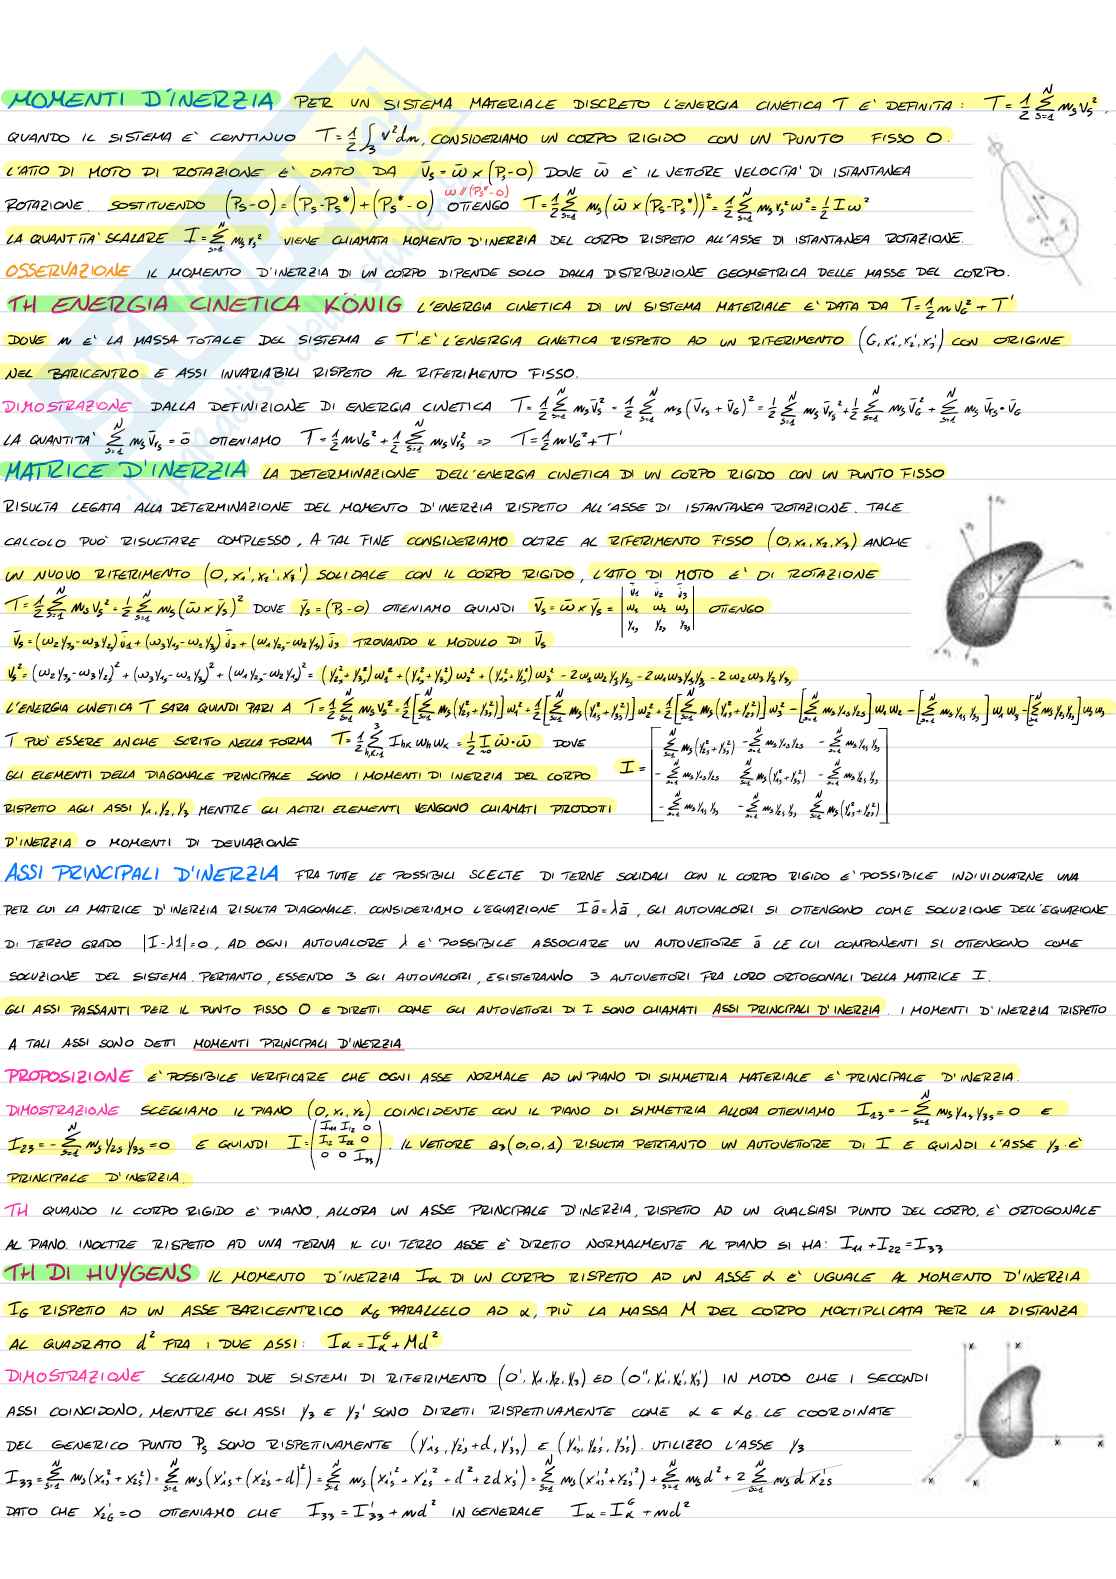 MOMENTI D'INERZIA PER UN SISTEMA MATERIALE DISCRETO L'ENERGIA CINETICA T E' DEFINITA: T = 1/2 Σ_{s=1}^{N} m_s v_s².
QUANDO IL SISTEMA E' CONTINUO T = 1/2 ∫ v² dm, CONSIDERIAMO UN CORPO RIGIDO CON UN PUNTO FISSO O.
L'ATTO DI MOTO DI ROTAZIONE E' DATO DA v̄_s = ω̄ × (P_s-O) DOVE ω̄ E' IL VETTORE VELOCITA' DI ISTANTANEA
ω̄ // (P_s*-O)
ROTAZIONE. SOSTITUENDO (P_s-O) = (P_s-P_s*) + (P_s*-O) OTTENGO T = 1/2 Σ_{s=1}^{N} m_s (ω̄ × (P_s-P_s*))² = 1/2 Σ_{s=1}^{N} m_s r_s² ω² = 1/2 I ω²
LA QUANTITA' SCALARE I = Σ_{s=1}^{N} m_s r_s² VIENE CHIAMATA MOMENTO D'INERZIA DEL CORPO RISPETTO ALL'ASSE DI ISTANTANEA ROTAZIONE.
OSSERVAZIONE IL MOMENTO D'INERZIA DI UN CORPO DIPENDE SOLO DALLA DISTRIBUZIONE GEOMETRICA DELLE MASSE DEL CORPO.
TH ENERGIA CINETICA KÖNIG L'ENERGIA CINETICA DI UN SISTEMA MATERIALE E' DATA DA T = 1/2 m v_G² + T'
DOVE m E' LA MASSA TOTALE DEL SISTEMA E T' E' L'ENERGIA CINETICA RISPETTO AD UN RIFERIMENTO (G, x₁', x₂', x₃') CON ORIGINE
NEL BARICENTRO E ASSI INVARIABILI RISPETTO AL RIFERIMENTO FISSO.
DIMOSTRAZIONE DALLA DEFINIZIONE DI ENERGIA CINETICA T = 1/2 Σ_{s=1}^{N} m_s v̄_s² = 1/2 Σ_{s=1}^{N} m_s (v̄_rs + v̄_G)² = 1/2 Σ_{s=1}^{N} m_s v̄_rs² + 1/2 Σ_{s=1}^{N} m_s v̄_G² + Σ_{s=1}^{N} m_s v̄_rs · v̄_G
LA QUANTITA' Σ_{s=1}^{N} m_s v̄_rs = 0̄ OTTENIAMO T = 1/2 m v_G² + 1/2 Σ_{s=1}^{N} m_s v_rs² => T = 1/2 m v_G² + T'
MATRICE D'INERZIA LA DETERMINAZIONE DELL'ENERGIA CINETICA DI UN CORPO RIGIDO CON UN PUNTO FISSO
RISULTA LEGATA ALLA DETERMINAZIONE DEL MOMENTO D'INERZIA RISPETTO ALL'ASSE DI ISTANTANEA ROTAZIONE. TALE
CALCOLO PUO' RISULTARE COMPLESSO, A TAL FINE CONSIDERIAMO OLTRE AL RIFERIMENTO FISSO (O, x₁, x₂, x₃) ANCHE
UN NUOVO RIFERIMENTO (O, x₁', x₂', x₃') SOLIDALE CON IL CORPO RIGIDO, L'ATTO DI MOTO E' DI ROTAZIONE
T = 1/2 Σ_{s=1}^{N} m_s v_s² = 1/2 Σ_{s=1}^{N} m_s (ω̄ × ȳ_s)² DOVE ȳ_s = (P_s-O) OTTENIAMO QUINDI v̄_s = ω̄ × ȳ_s = | j̄₁ j̄₂ j̄₃ ; ω₁ ω₂ ω₃ ; y₁s y₂s y₃s | OTTENGO
v̄_s = (ω₂y₃s - ω₃y₂s) j̄₁ + (ω₃y₁s - ω₁y₃s) j̄₂ + (ω₁y₂s - ω₂y₁s) j̄₃ TROVANDO IL MODULO DI v̄_s
v_s² = (ω₂y₃s - ω₃y₂s)² + (ω₃y₁s - ω₁y₃s)² + (ω₁y₂s - ω₂y₁s)² = (y₂s² + y₃s²) ω₁² + (y₁s² + y₃s²) ω₂² + (y₁s² + y₂s²) ω₃² - 2ω₁ω₂y₁sy₂s - 2ω₁ω₃y₁sy₃s - 2ω₂ω₃y₂sy₃s
L'ENERGIA CINETICA T SARA QUINDI PARI A T = 1/2 Σ_{s=1}^{N} m_s v_s² = 1/2 [Σ_{s=1}^{N} m_s (y₂s² + y₃s²)] ω₁² + 1/2 [Σ_{s=1}^{N} m_s (y₁s² + y₃s²)] ω₂² + 1/2 [Σ_{s=1}^{N} m_s (y₁s² + y₂s²)] ω₃² - [Σ_{s=1}^{N} m_s y₁s y₂s] ω₁ω₂ - [Σ_{s=1}^{N} m_s y₁s y₃s] ω₁ω₃ - [Σ_{s=1}^{N} m_s y₂s y₃s] ω₂ω₃
T PUO' ESSERE ANCHE SCRITTO NELLA FORMA T = 1/2 Σ_{h,k=1}^{3} I_hk ω_h ω_k = 1/2 I ω̄ · ω̄ DOVE
GLI ELEMENTI DELLA DIAGONALE PRINCIPALE SONO I MOMENTI DI INERZIA DEL CORPO I = [ Σ m_s (y₂s² + y₃s²) -Σ m_s y₁s y₂s -Σ m_s y₁s y₃s ; -Σ m_s y₁s y₂s Σ m_s (y₁s² + y₃s²) -Σ m_s y₂s y₃s ; -Σ m_s y₁s y₃s -Σ m_s y₂s y₃s Σ m_s (y₁s² + y₂s²) ]
RISPETTO AGLI ASSI y₁, y₂, y₃ MENTRE GLI ALTRI ELEMENTI VENGONO CHIAMATI PRODOTTI
D'INERZIA O MOMENTI DI DEVIAZIONE
ASSI PRINCIPALI D'INERZIA FRA TUTTE LE POSSIBILI SCELTE DI TERNE SOLIDALI CON IL CORPO RIGIDO E' POSSIBILE INDIVIDUARNE UNA
PER CUI LA MATRICE D'INERZIA RISULTA DIAGONALE. CONSIDERIAMO L'EQUAZIONE I ā = λ ā, GLI AUTOVALORI SI OTTENGONO COME SOLUZIONE DELL'EQUAZIONE
DI TERZO GRADO |I-λ1| = 0, AD OGNI AUTOVALORE λ E' POSSIBILE ASSOCIARE UN AUTOVETTORE ā LE CUI COMPONENTI SI OTTENGONO COME
SOLUZIONE DEL SISTEMA. PERTANTO, ESSENDO 3 GLI AUTOVALORI, ESISTERANNO 3 AUTOVETTORI FRA LORO ORTOGONALI DELLA MATRICE I.
GLI ASSI PASSANTI PER IL PUNTO FISSO O E DIRETTI COME GLI AUTOVETTORI DI I SONO CHIAMATI ASSI PRINCIPALI D'INERZIA. I MOMENTI D'INERZIA RISPETTO
A TALI ASSI SONO DETTI MOMENTI PRINCIPALI D'INERZIA
PROPOSIZIONE E' POSSIBILE VERIFICARE CHE OGNI ASSE NORMALE AD UN PIANO DI SIMMETRIA MATERIALE E' PRINCIPALE D'INERZIA.
DIMOSTRAZIONE SCEGLIAMO IL PIANO (O, x₁, y₂) COINCIDENTE CON IL PIANO DI SIMMETRIA ALLORA OTTENIAMO I₁₃ = -Σ_{s=1}^{N} m_s y₁s y₃s = 0 E
I₂₃ = -Σ_{s=1}^{N} m_s y₂s y₃s = 0 E QUINDI I = ( I₁₁ I₁₂ 0 ; I₁₂ I₂₂ 0 ; 0 0 I₃₃ ). IL VETTORE a₃(0,0,1) RISULTA PERTANTO UN AUTOVETTORE DI I E QUINDI L'ASSE y₃ E'
PRINCIPALE D'INERZIA.
TH QUANDO IL CORPO RIGIDO E' PIANO, ALLORA UN ASSE PRINCIPALE D'INERZIA, RISPETTO AD UN QUALSIASI PUNTO DEL CORPO, E' ORTOGONALE
AL PIANO. INOLTRE RISPETTO AD UNA TERNA IL CUI TERZO ASSE E' DIRETTO NORMALMENTE AL PIANO SI HA: I₁₁ + I₂₂ = I₃₃
TH DI HUYGENS IL MOMENTO D'INERZIA Iα DI UN CORPO RISPETTO AD UN ASSE α E' UGUALE AL MOMENTO D'INERZIA
I_G RISPETTO AD UN ASSE BARICENTRICO α_G PARALLELO AD α, PIÙ LA MASSA M DEL CORPO MOLTIPLICATA PER LA DISTANZA
AL QUADRATO d² FRA I DUE ASSI: Iα = Iα^G + Md²
DIMOSTRAZIONE SCEGLIAMO DUE SISTEMI DI RIFERIMENTO (O', y₁, y₂, y₃) ED (O'', y₁', y₂', y₃') IN MODO CHE I SECONDI
ASSI COINCIDONO, MENTRE GLI ASSI y₃ E y₃' SONO DIRETTI RISPETTIVAMENTE COME α E α_G. LE COORDINATE
DEL GENERICO PUNTO P_s SONO RISPETTIVAMENTE (y₁s', y₂s' + d, y₃s') E (y₁s', y₂s', y₃s'). UTILIZZO L'ASSE y₃
I₃₃ = Σ_{s=1}^{N} m_s (x₁s² + x₂s²) = Σ_{s=1}^{N} m_s (x₁s'² + (x₂s' + d)²) = Σ_{s=1}^{N} m_s (x₁s'² + x₂s'² + d² + 2d x₂s') = Σ_{s=1}^{N} m_s (x₁s'² + x₂s'²) + Σ_{s=1}^{N} m_s d² + 2 Σ_{s=1}^{N} m_s d x₂s'
DATO CHE x₂G' = 0 OTTENIAMO CHE I₃₃ = I₃₃' + md² IN GENERALE Iα = Iα^G + md²